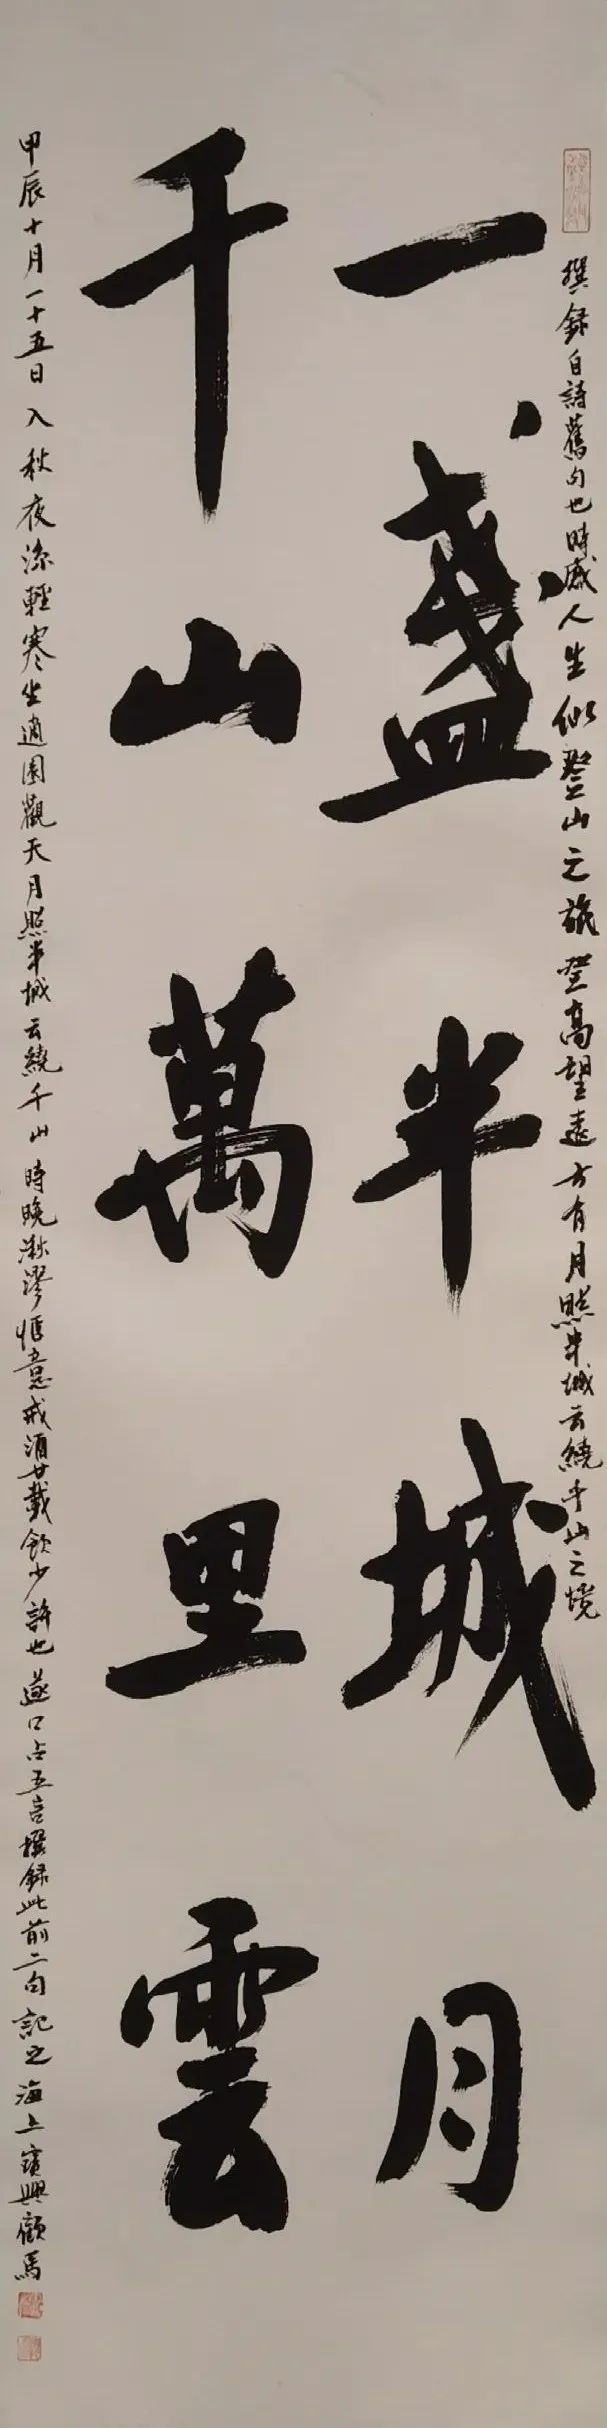 撰録自詩舊句也時感人生似登山之旅登高望遠方有月照半城云繞千山之境
一盞半城月
千山萬里雲
甲辰十月一十五日入秋夜涼輕寒坐適園觀天月照半城云繞千山時晚湫漻惬意戒酒廿載飲少許也遂口占五言撰録此前二句記之海上寶興顧馬